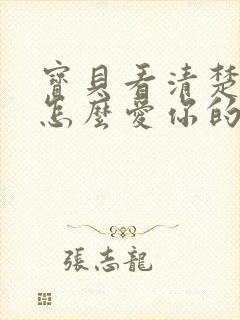 寶貝看清楚
怎麼愛你的
張志龍